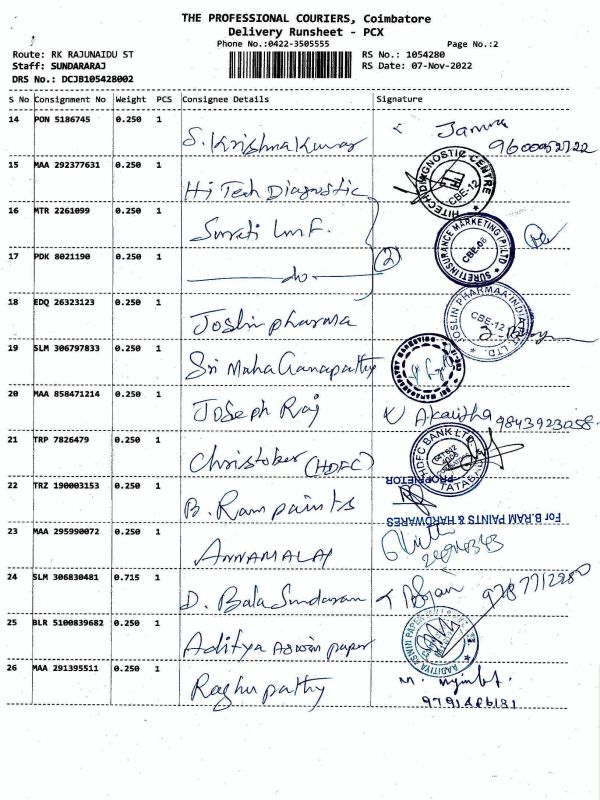 THE PROFESSIONAL COURIERS, Coimbatore
Delivery Runsheet - PCX
Phone No.:0422-3505555 Page No.:2
Route: RK RAJUNAIDU ST RS No.: 1054280
Staff: SUNDARARAJ RS Date: 07-Nov-2022
DRS No.: DCJB105428002
S No Consignment No Weight PCS Consignee Details Signature
14 PON 5186745 0.250 1 S. Krishna Kumar
15 MAA 292377631 0.250 1 Hi Tech Diagnostic HITECH DIAGNOSTIC CENTRE CBE-12
16 MTR 2261099 0.250 1
17 PDK 8021190 0.250 1 do 2 CBE-08
18 EDQ 26323123 0.250 1 Joslin pharma JOSLIN PHARMAA INDIA CBE-12
19 SLM 306797833 0.250 1 Sri Maha Ganapathy
20 MAA 858471214 0.250 1 Joseph Raj 9843923058
21 TRP 7826479 0.250 1 Christober (HDFC) HDFC BANK LTD. TATABAD
22 TRZ 190003153 0.250 1 B. Ram paints For B.RAM PAINTS & HARDWARES PROPRIETOR
23 MAA 295990072 0.250 1 ANNAMALAI
24 SLM 306830481 0.715 1 D. Bala Sundaram 9787712980
25 BLR 5100839682 0.250 1 Aditya Aswin paper
26 MAA 291395511 0.250 1 Raghupathy